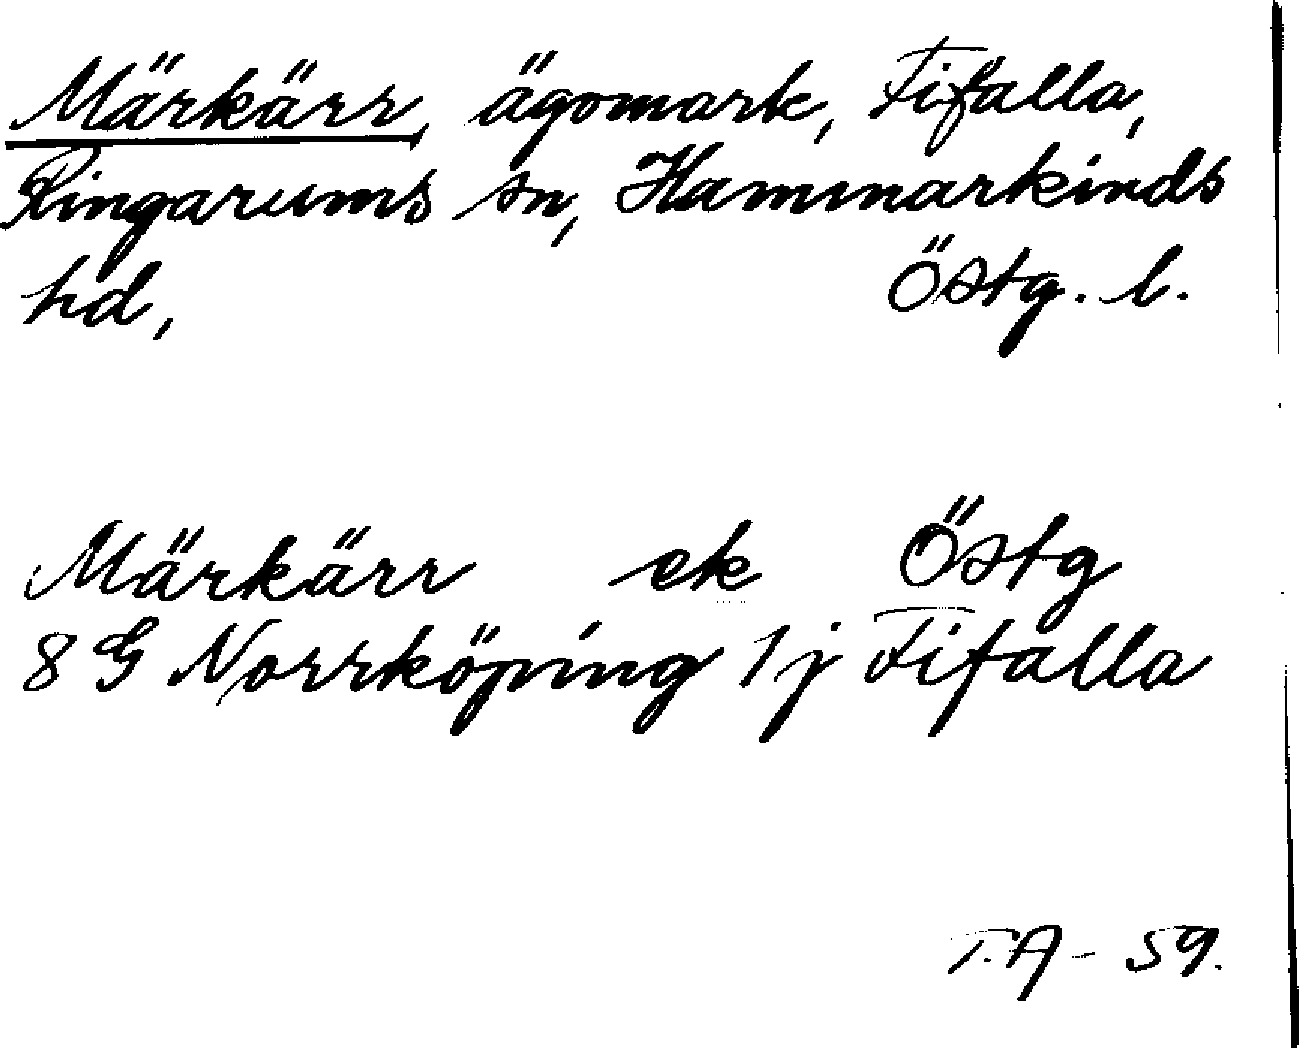 Märkärr, ägomark, Fifalla,
Ringarums sn, Hammarkinds
hd, Östg. l.
Märkärr ek Östg
8 G Norrköping 1j Fifalla
T.A - 59.